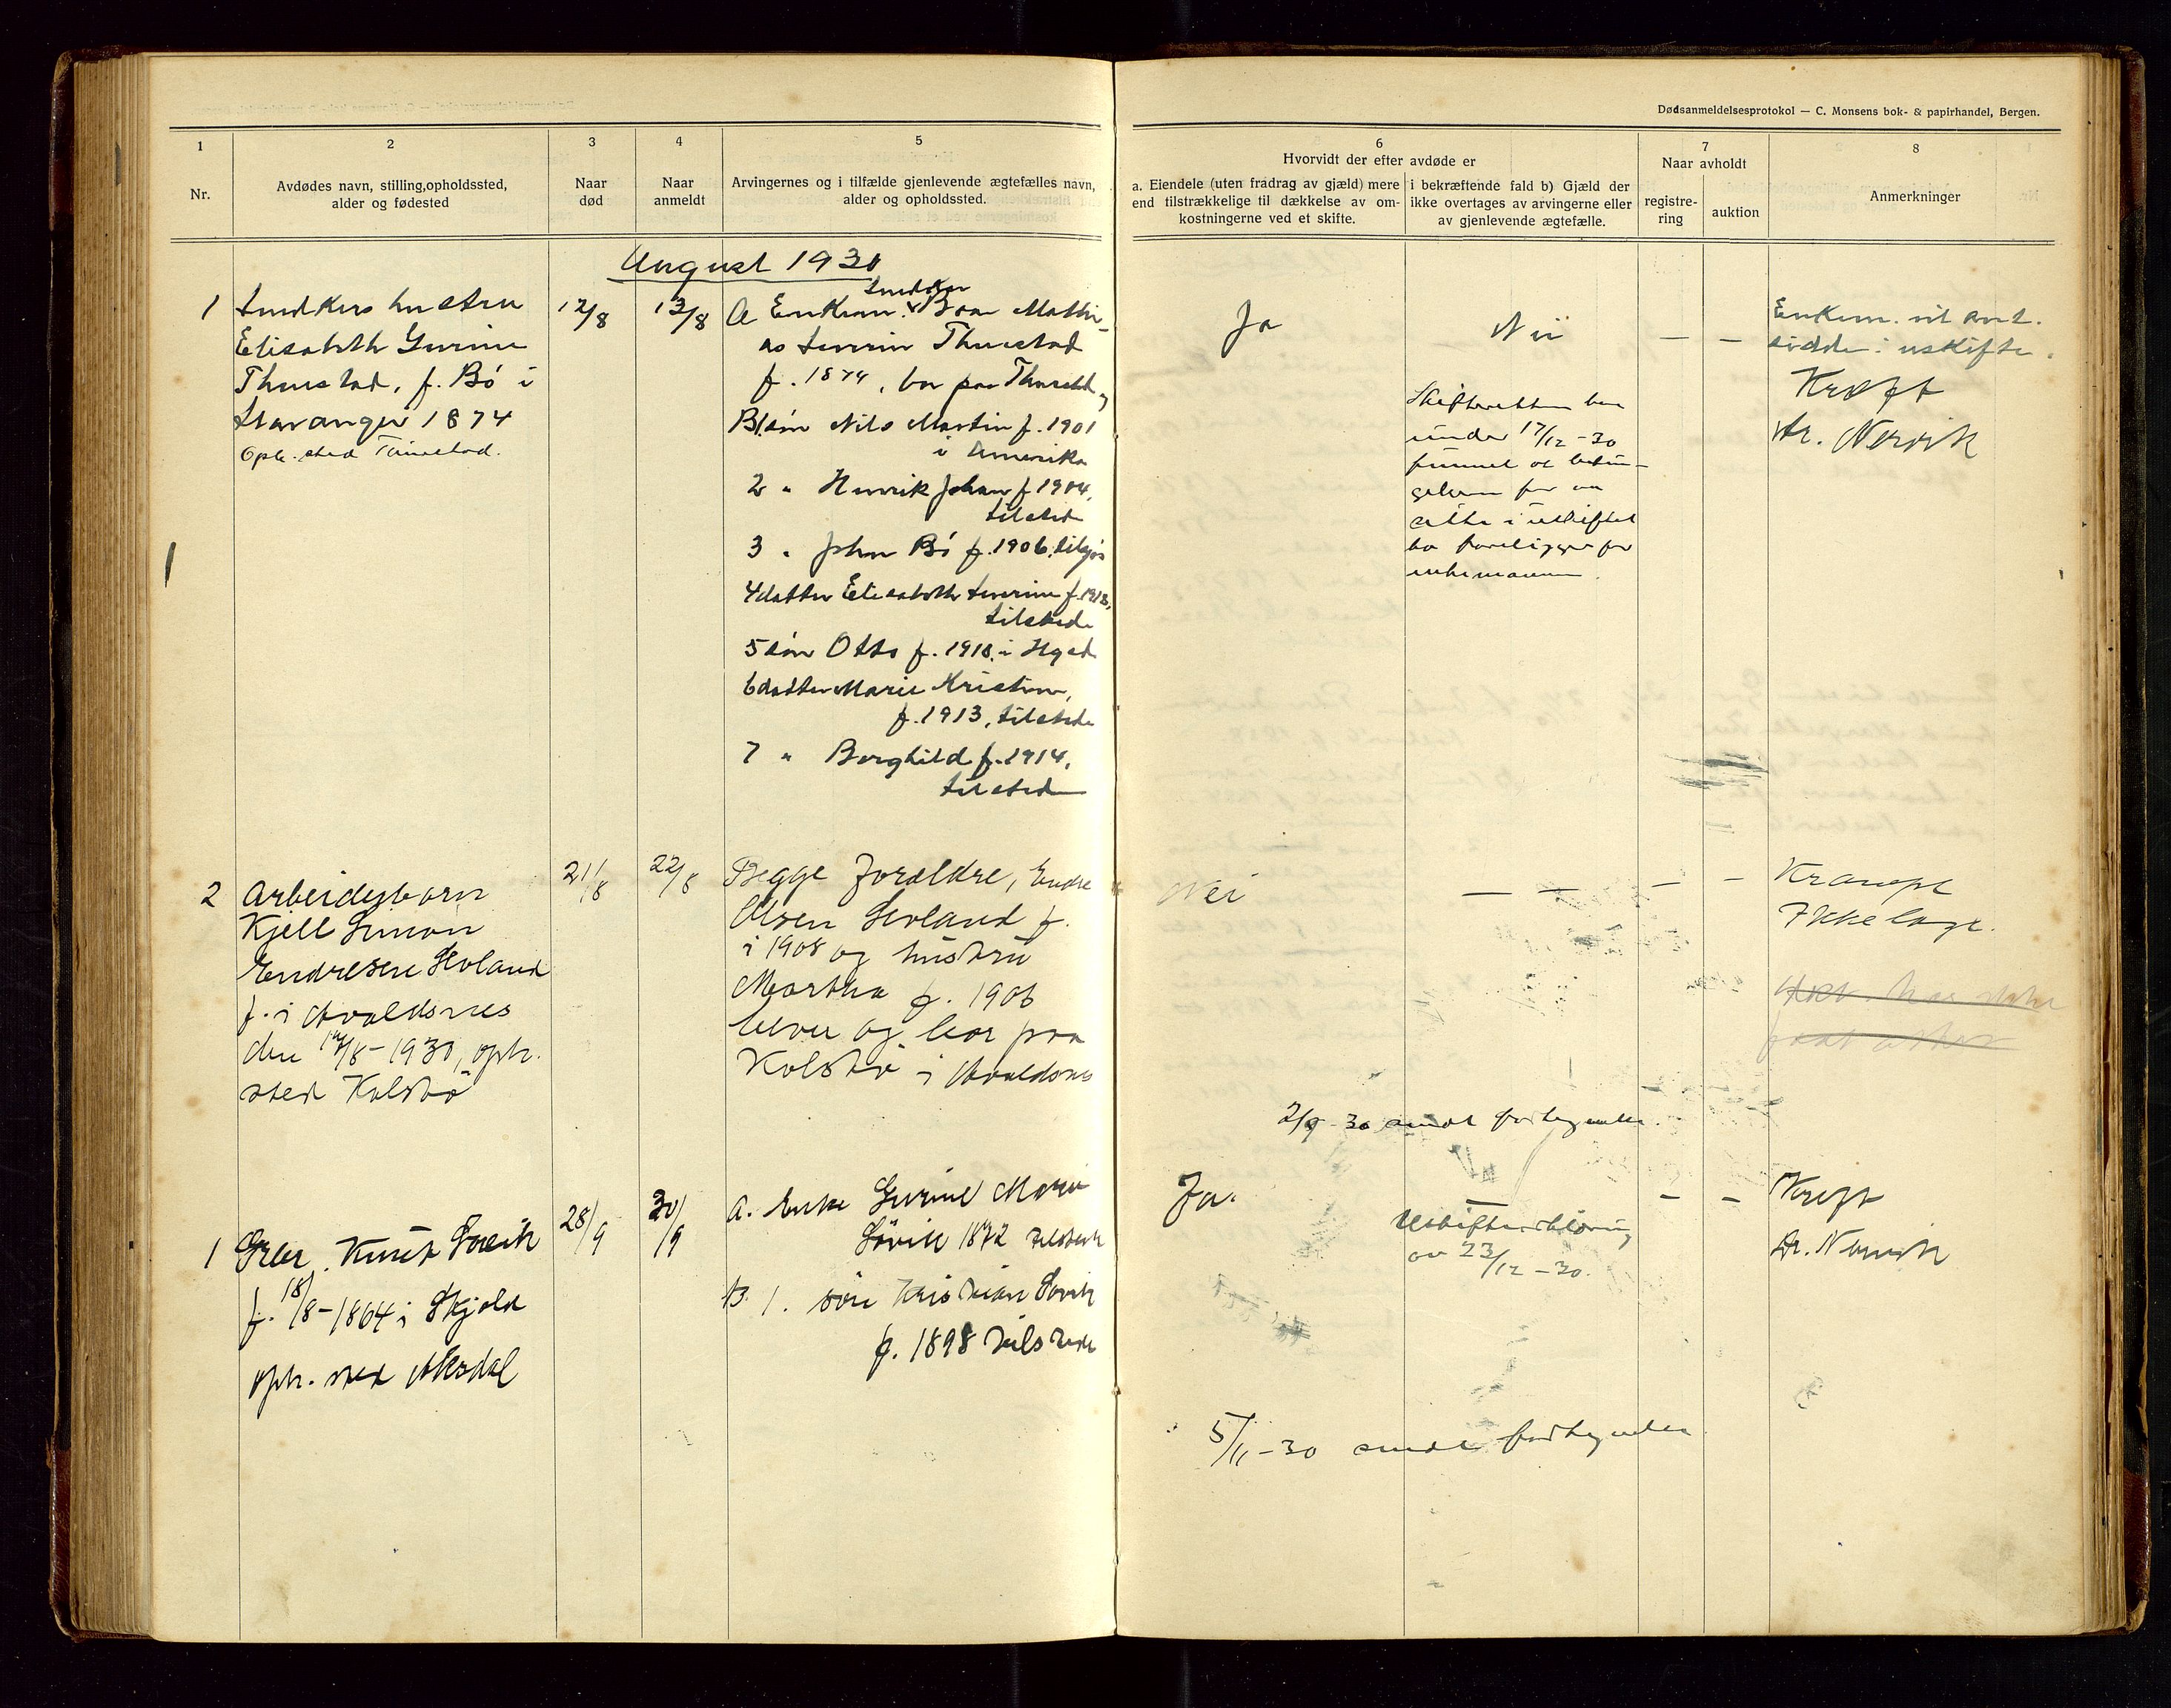 Dødsanmeldelsesprotokol — C. Monsens bok- & papirhandel, Bergen.
1
Nr.
2
Avdødes navn, stilling, opholdssted,
alder og fødested
3
Naar
død
4
Naar
anmeldt
5
Arvingernes og i tilfælde gjenlevende ægtefælles navn,
alder og opholdssted.
6
Hvorvidt der efter avdøde er
a. Eiendele (uten fradrag av gjæld) mere
end tilstrækkelige til dækkelse av om-
kostningerne ved et skifte.
i bekræftende fald b) Gjæld der
ikke overtages av arvingerne eller
av gjenlevende ægtefælle.
7
Naar avholdt
registre-
ring
auktion
8
Anmerkninger
August 1930
1
hustru
Elisabeth
Thuestad, f. Bø i
Stavanger 1874
Oph. sted
12/8
13/8
A Enkem.
as Severin Thuestad
f. 1874, bor paa
B1. søn Nils Martin f. 1901
i Amerika
2 " Henrik Johan f 1904,
tilstede
3 " John Bø f. 1906,
4 datter Elisabeth Severine f.
tilstede
5 søn Otto f. 1918, i
6 datter Marie Kristine,
f. 1913, tilstede
7 " Borghild f. 1914,
tilstede
Ja
Nei
Skifteretten har
under 17/12 - 30
funnet at betin-
gelsene for aa
sitte i uskiftet
bo foreligger for
enkemannen.
— —
Enkem. vil
sidde i uskifte.
Kræft
dr. Nervik
2
Arbeidersbarn
Kjell Simon
Endresen
f. i Avaldsnes
den 1930, oph.
sted Kolstø
21/8
22/8
Begge Forældre, Endre
Olsen f.
i 1908 og hustru
Martha f. 1906
lever og bor paa
Kolstø i Avaldsnes
Nei
— —
— —
Krampe
Ikke læge.
2/9 - 30 sendt fortegnelse.
1
Knut Søvik
f. 18/8 - 1864 i Skjold
oph. sted Aksdal
28/9
30/9
A. Enke Marie
Søvik 1872 tilstede
B. 1. søn Kristian Søvik
f. 1898 tilstede
Ja.
—
av 23/12 - 30.
— —
Kræft
dr. Nervik
5/11 - 30 sendt fortegnelse